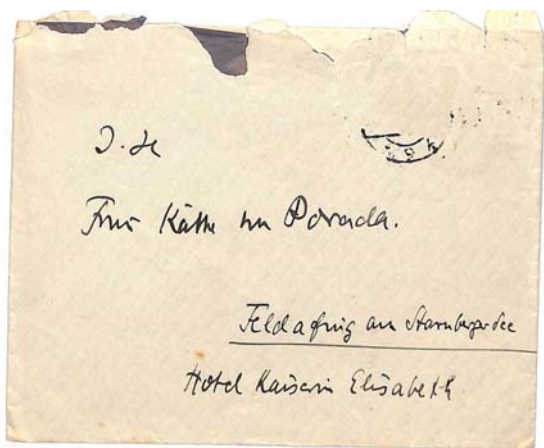 I. H.
Frau Käthe von Porada.
Feldafing am Starnberger See
Hotel Kaiserin Elisabeth